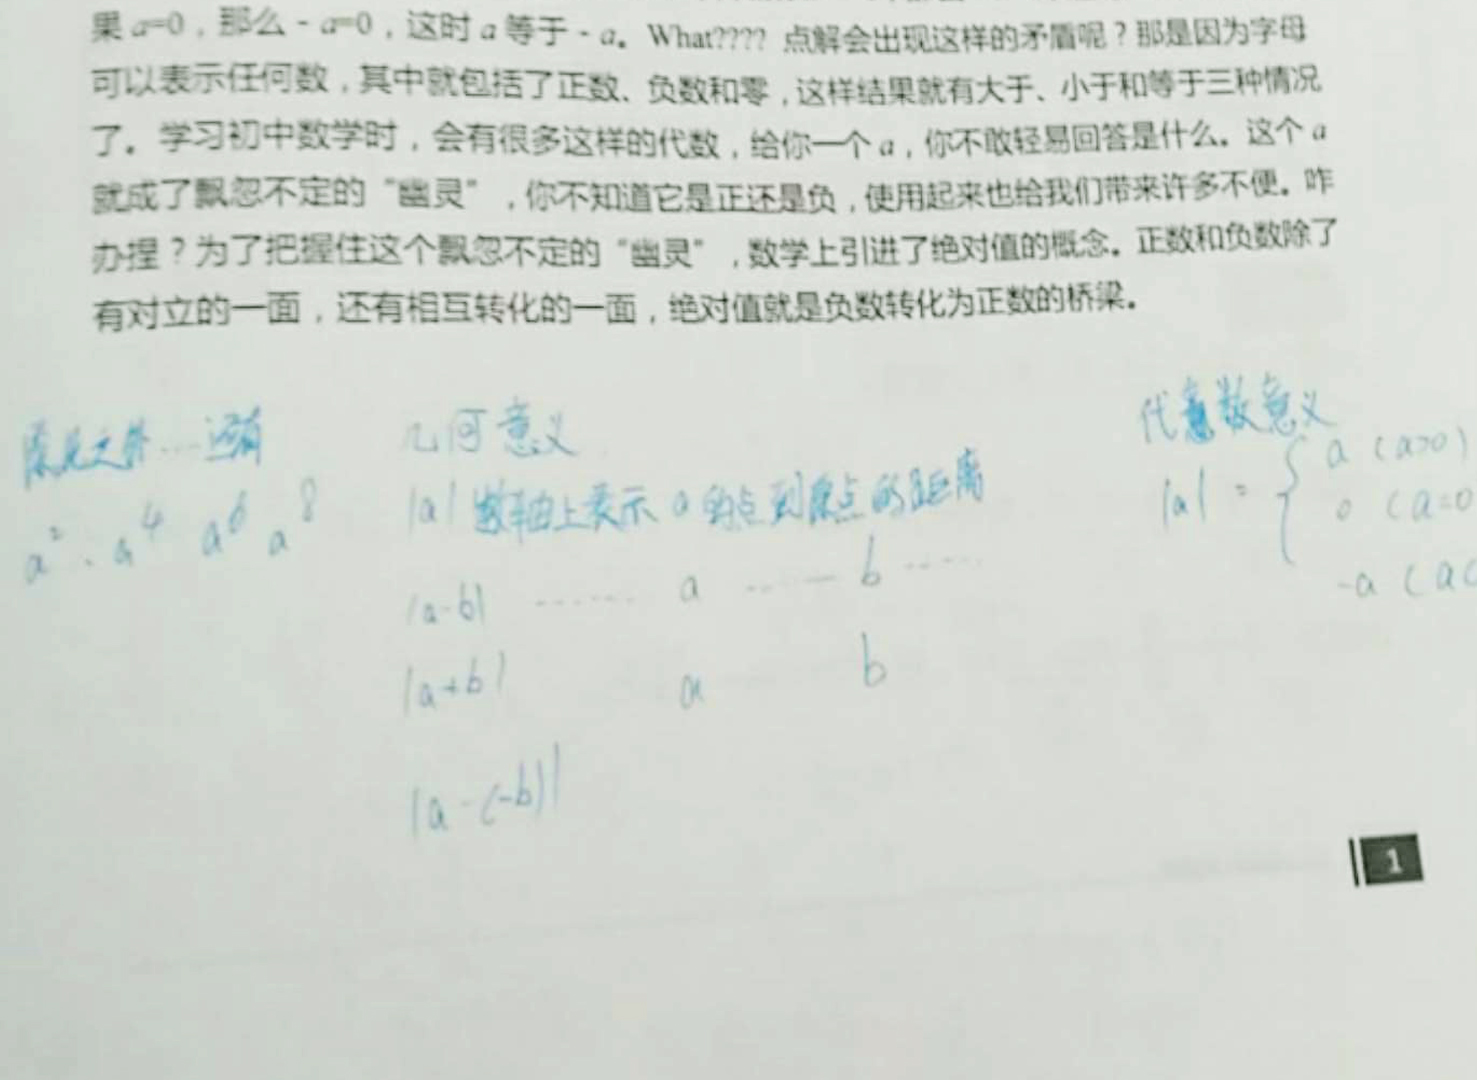 果a=0，那么-a=0，这时a等于-a。What???? 点解会出现这样的矛盾呢？那是因为字母
可以表示任何数，其中就包括了正数、负数和零，这样结果就有大于、小于和等于三种情况
了。学习初中数学时，会有很多这样的代数，给你一个a，你不敢轻易回答是什么。这个a
就成了飘忽不定的“幽灵”，你不知道它是正还是负，使用起来也给我们带来许多不便。咋
办捏？为了把握住这个飘忽不定的“幽灵”，数学上引进了绝对值的概念。正数和负数除了
有对立的一面，还有相互转化的一面，绝对值就是负数转化为正数的桥梁。
除此之外……还有
a² . a⁴ a⁶ a⁸
几何意义
|a| 数轴上表示 a 的点到原点的距离
|a-b| …… a …… b ……
|a+b| a b
|a-(-b)|
代数意义
|a| = { a (a>0)
0 (a=0
-a (a<
1